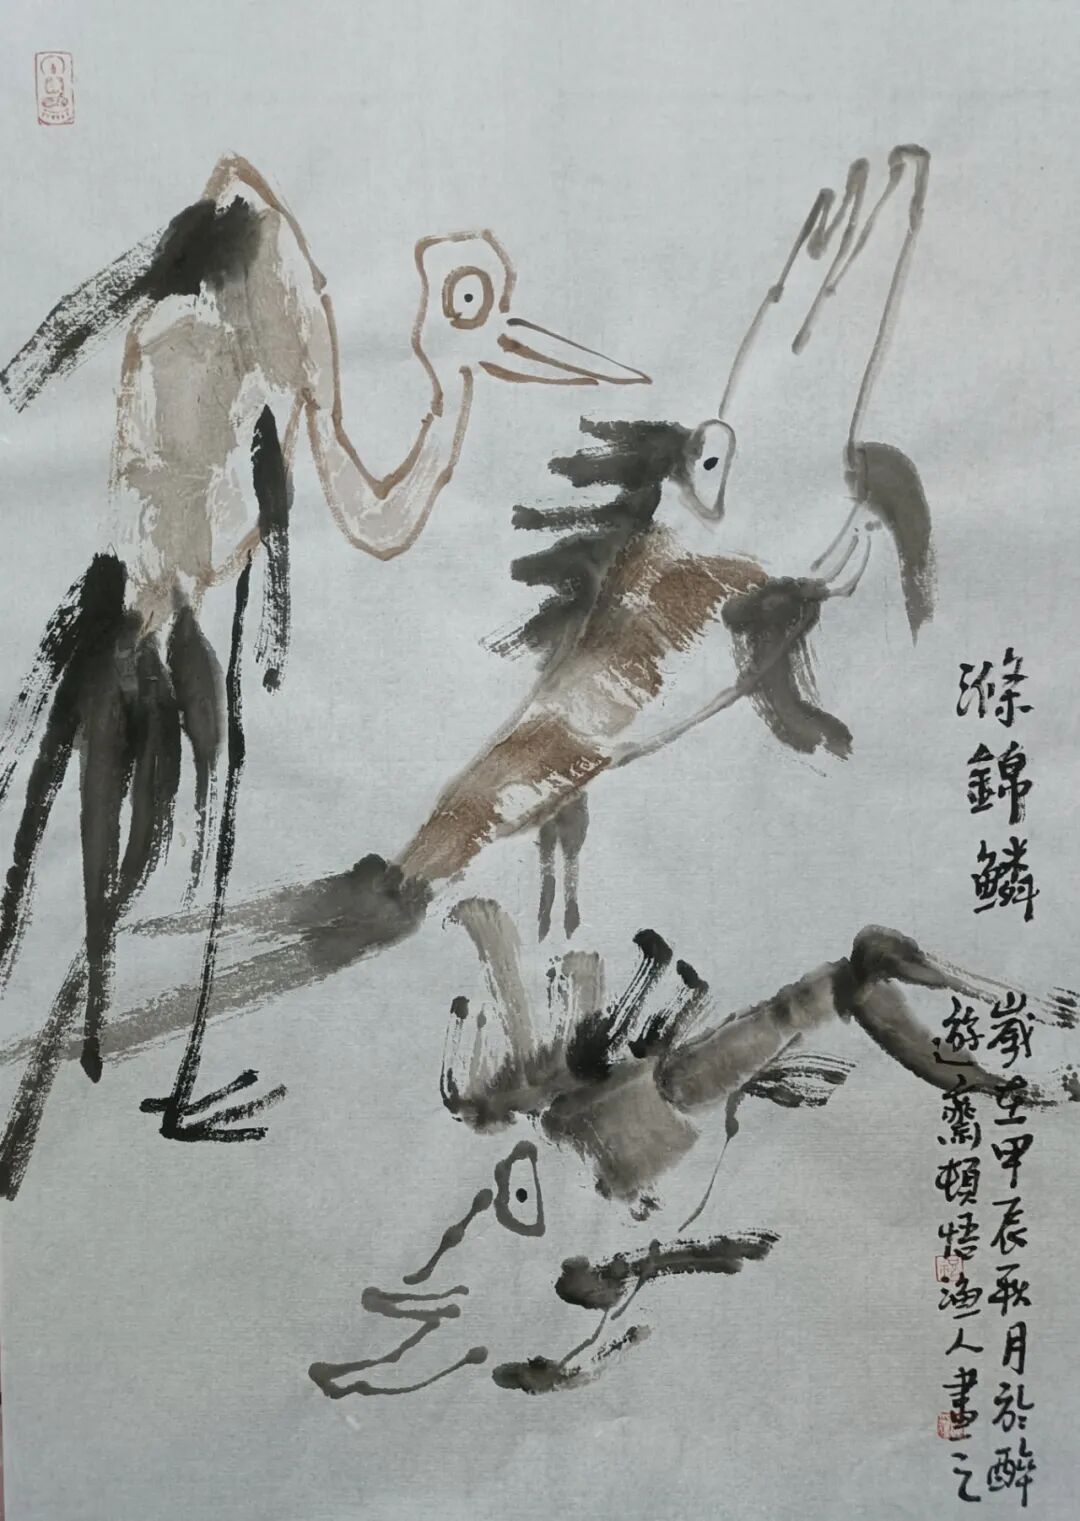 滌錦鱗
歲在甲辰秋月於醉
遊齋頓悟漁人畫之